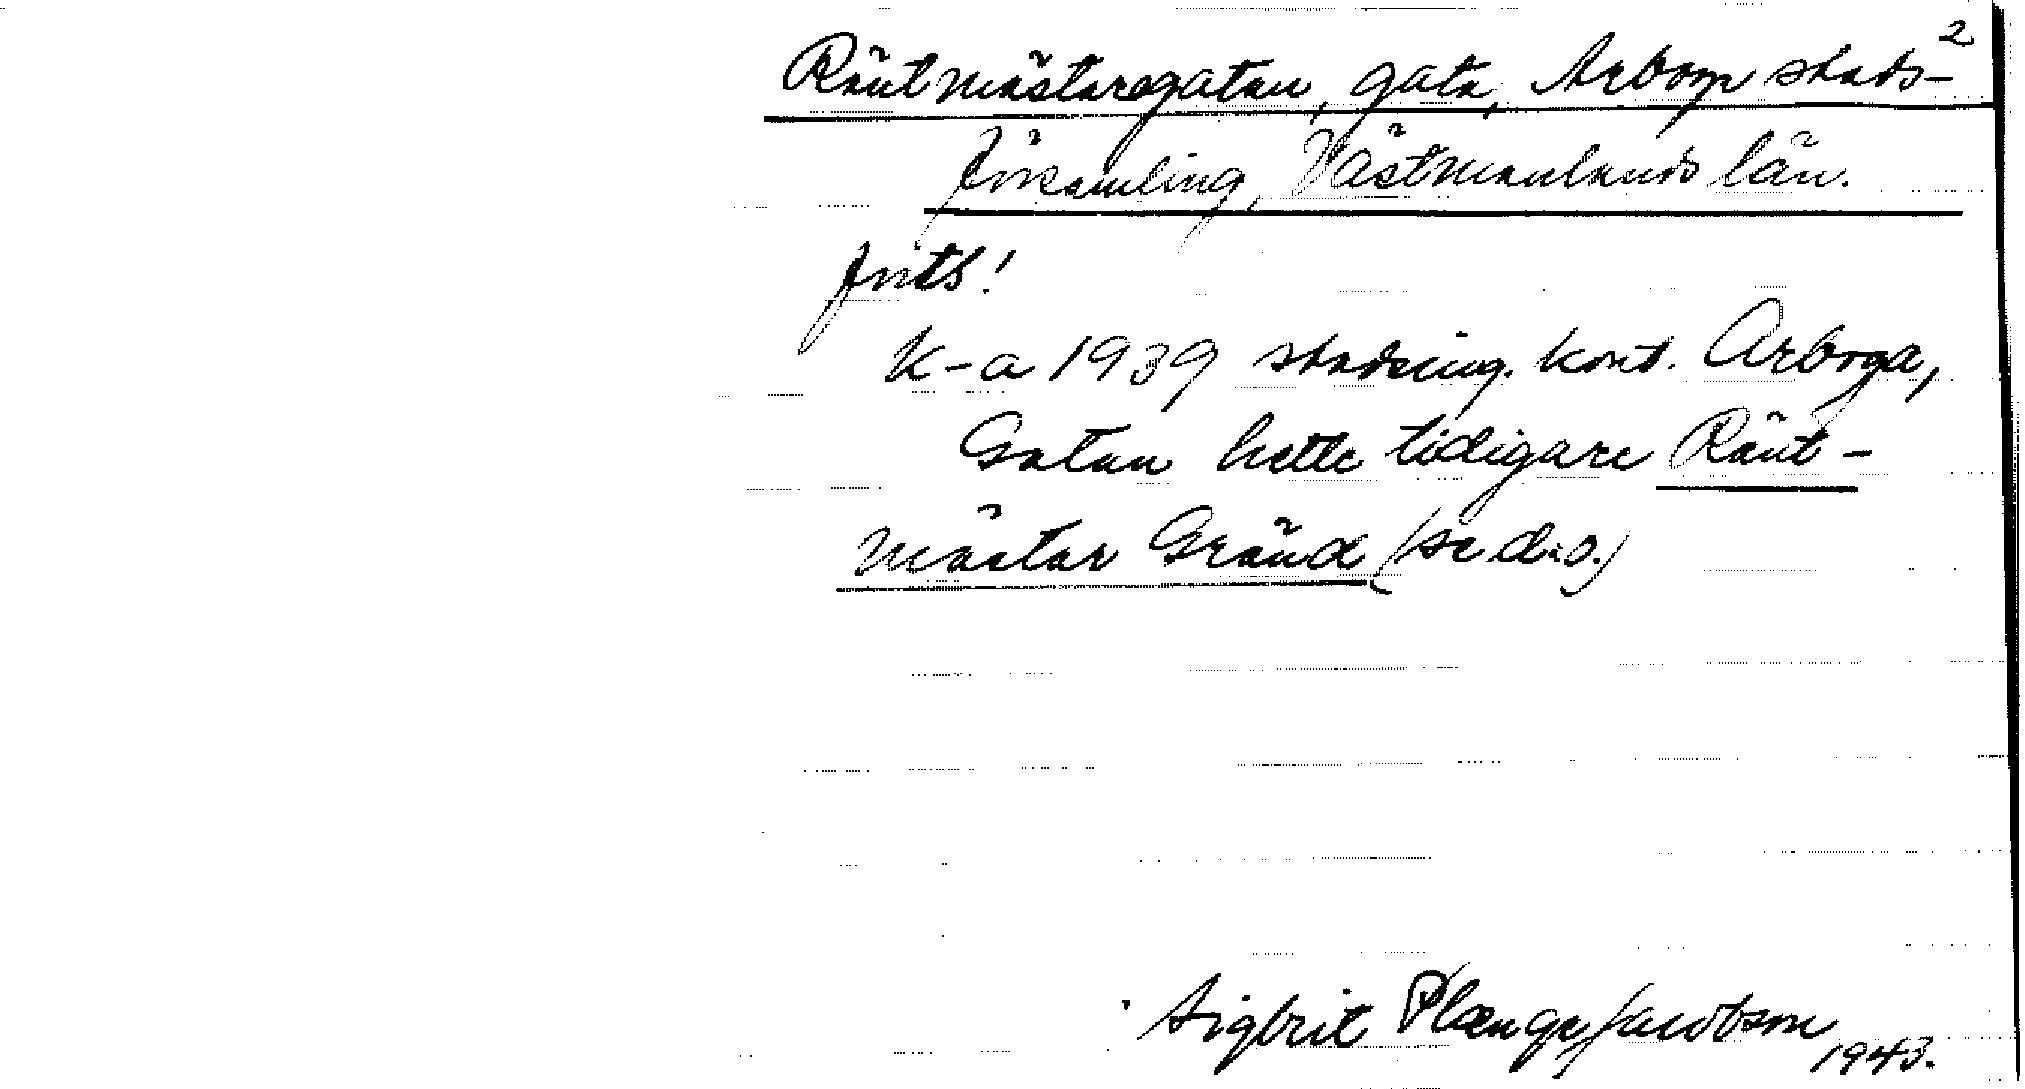 2
Räntmästaregatan, gata, Arboga stads-
församling, Västmanlands län.
forts!
K-a 1939 stadsing. kont. Arboga,
Gatan hette tidigare Ränt-
mästar Gränd (se d.o.)
Sigbrit Plænge Jacobson
1943.